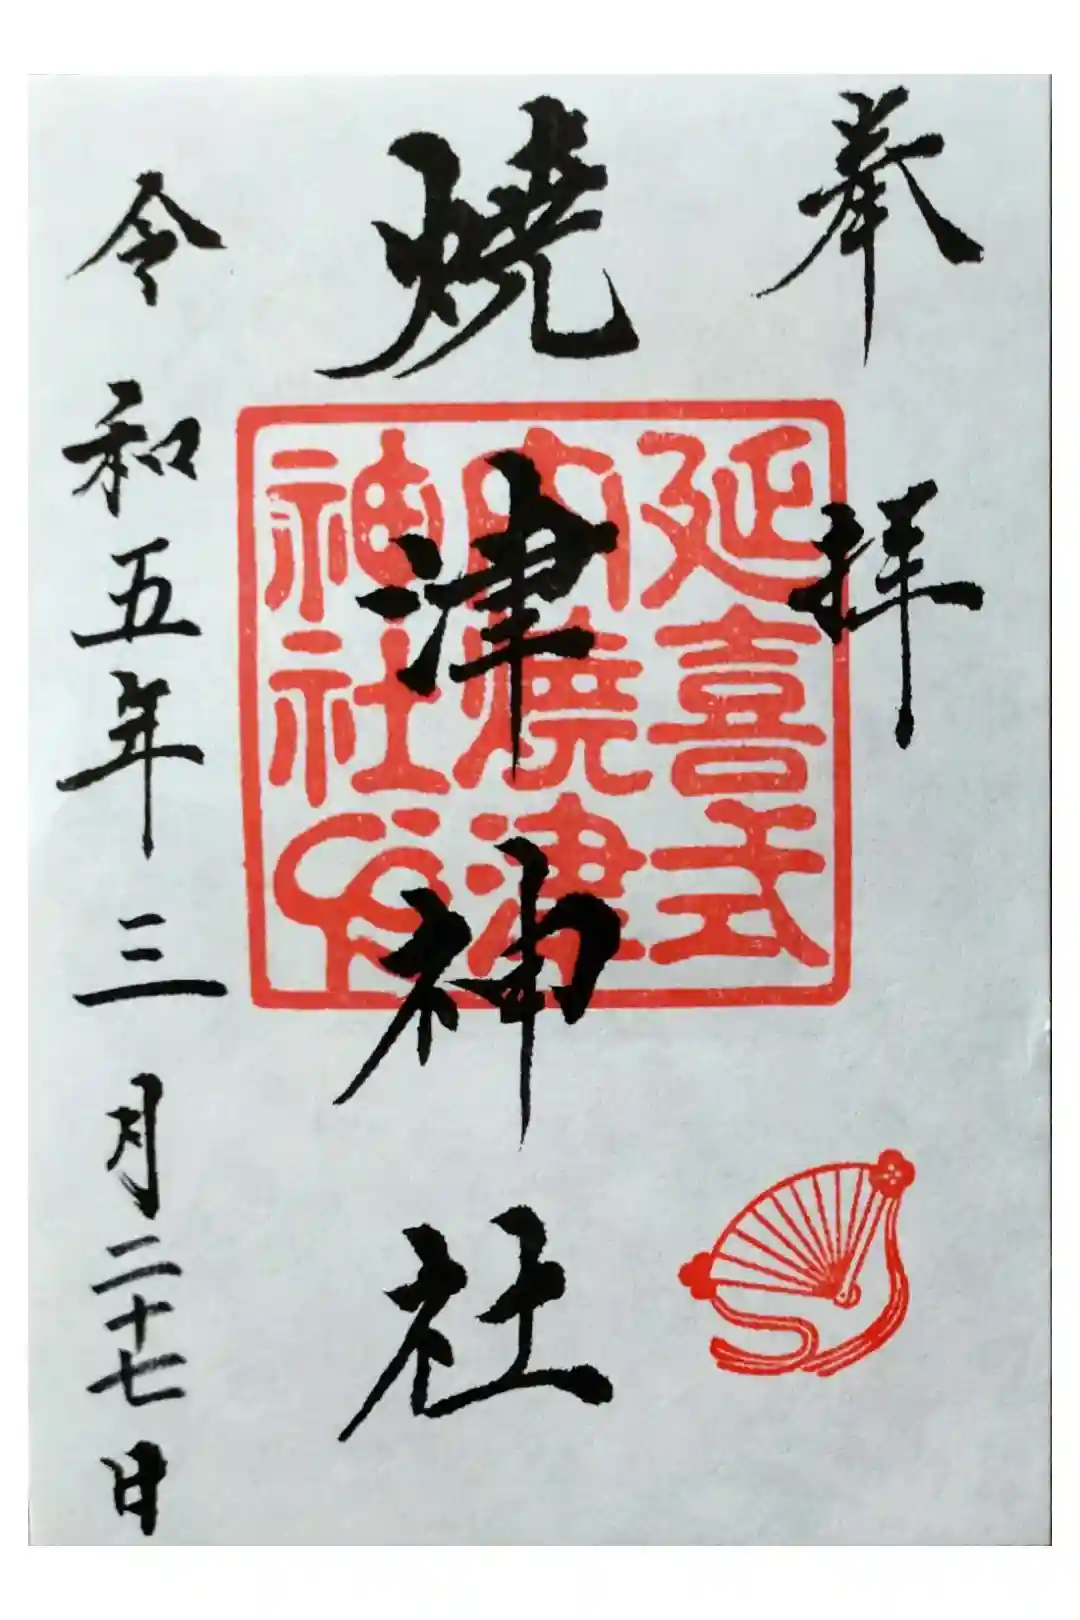 奉拝
延喜式
内焼津
神社印
焼津神社
令和五年三月二十七日